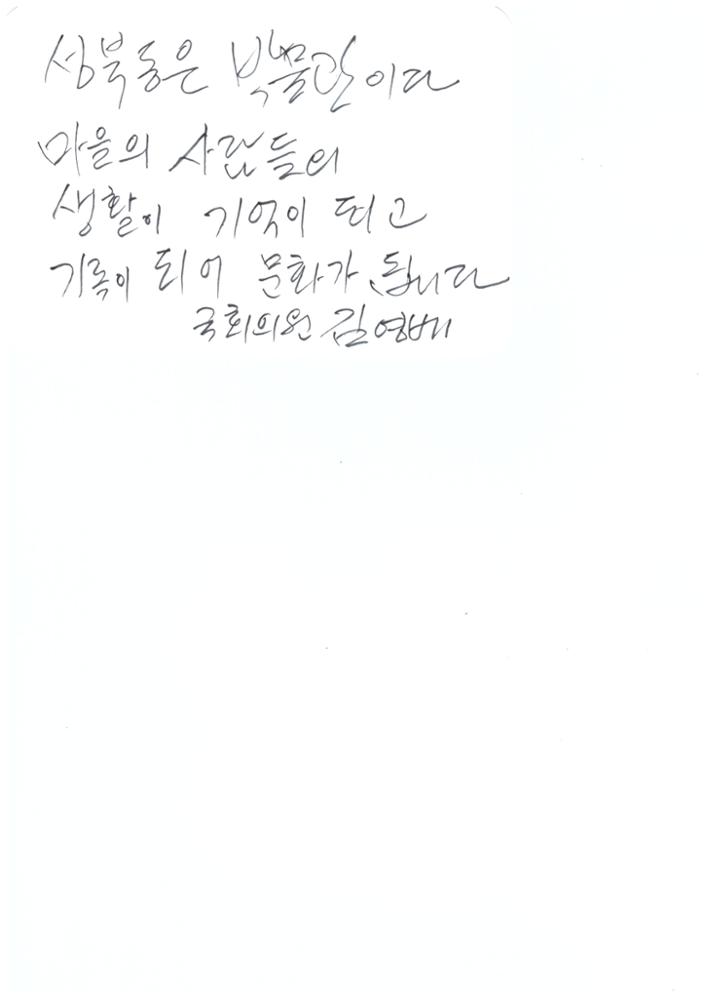 성북동은 박물관이다
마을의 사람들의
생활이 기억이 되고
기록이 되어 문화가 됩니다
국회의원 김영배